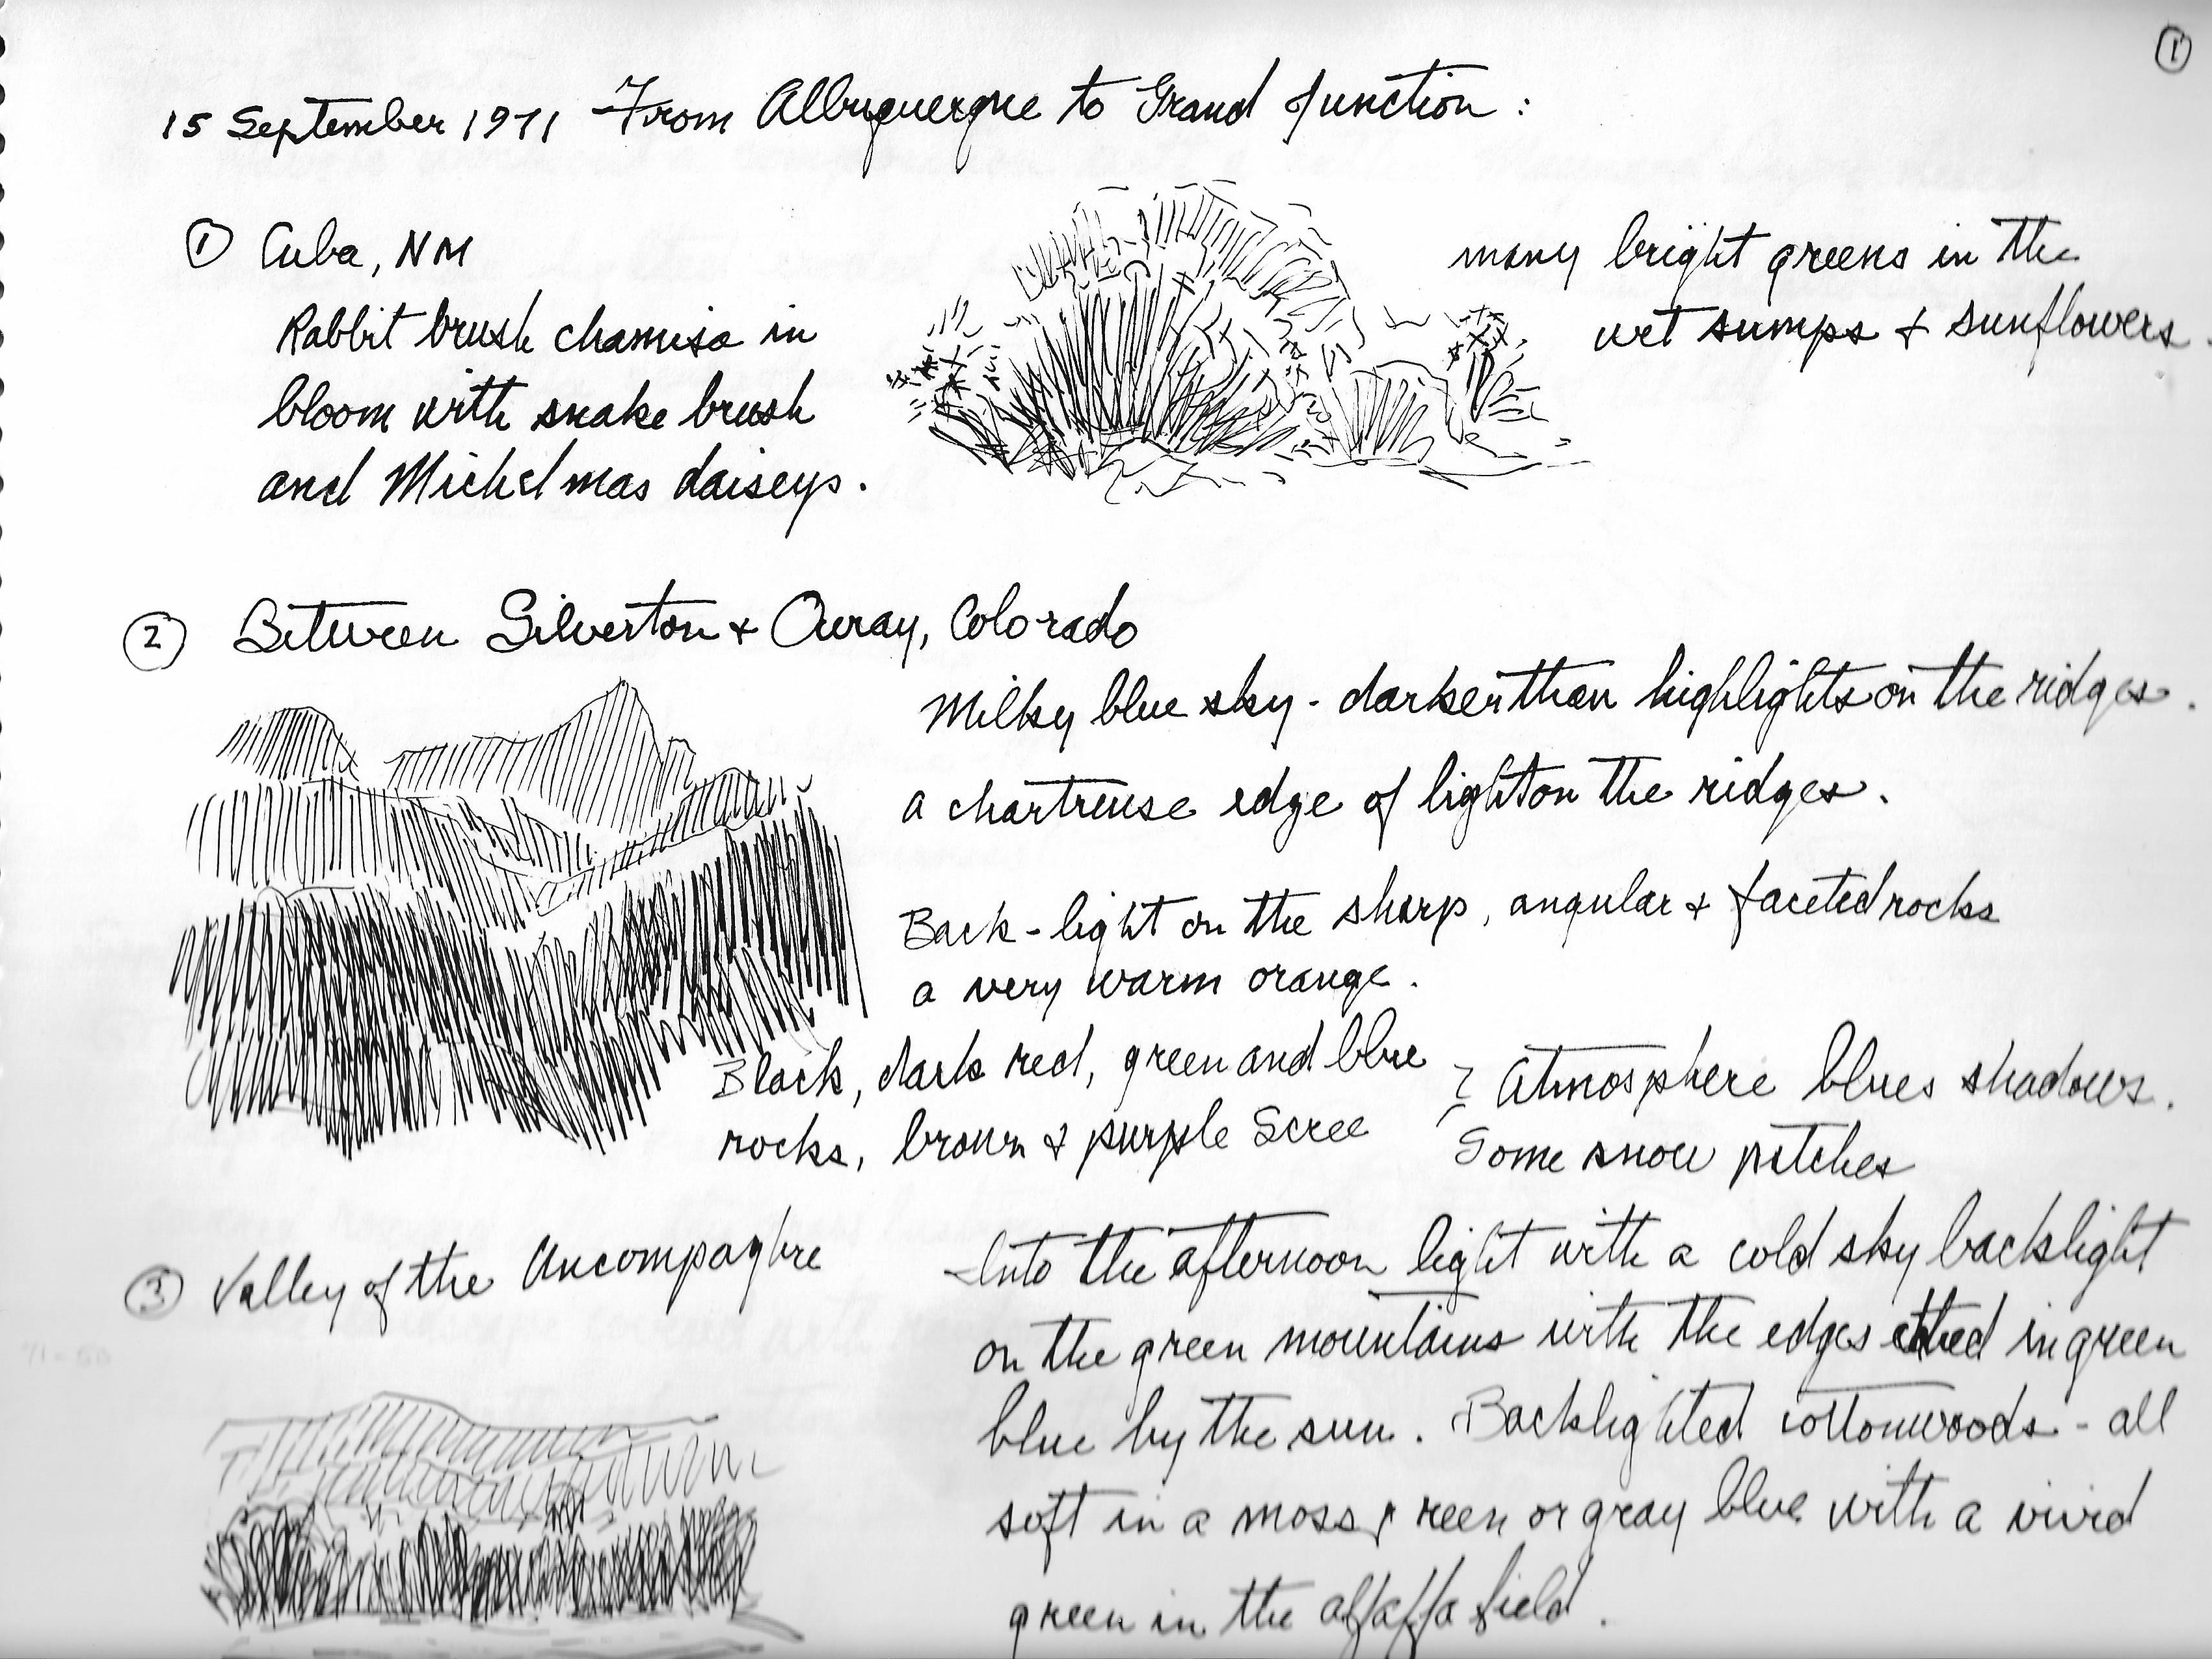 ①
15 September 1971 From Albuquerque to Grand Junction :
① Cuba, NM
Rabbit brush chamisa in
bloom with snake brush
and Michelmas daiseys.
many bright greens in the
wet sumps & sunflowers.
② Between Silverton & Ouray, Colorado
Milky blue sky - darker than highlights on the ridges.
a chartreuse edge of light on the ridges.
Back-light on the sharp, angular & faceted rocks
a very warm orange.
Black, dark red, green and blue
rocks, brown & purple Scree
Atmosphere blues shadows.
Some snow patches
③ Valley of the Uncompaghre
Into the afternoon light with a cold sky backlight
on the green mountains with the edges etched in green
blue by the sun. Backlighted cottonwoods - all
soft in a moss green or gray blue with a vivid
green in the alfalfa field.
71-50